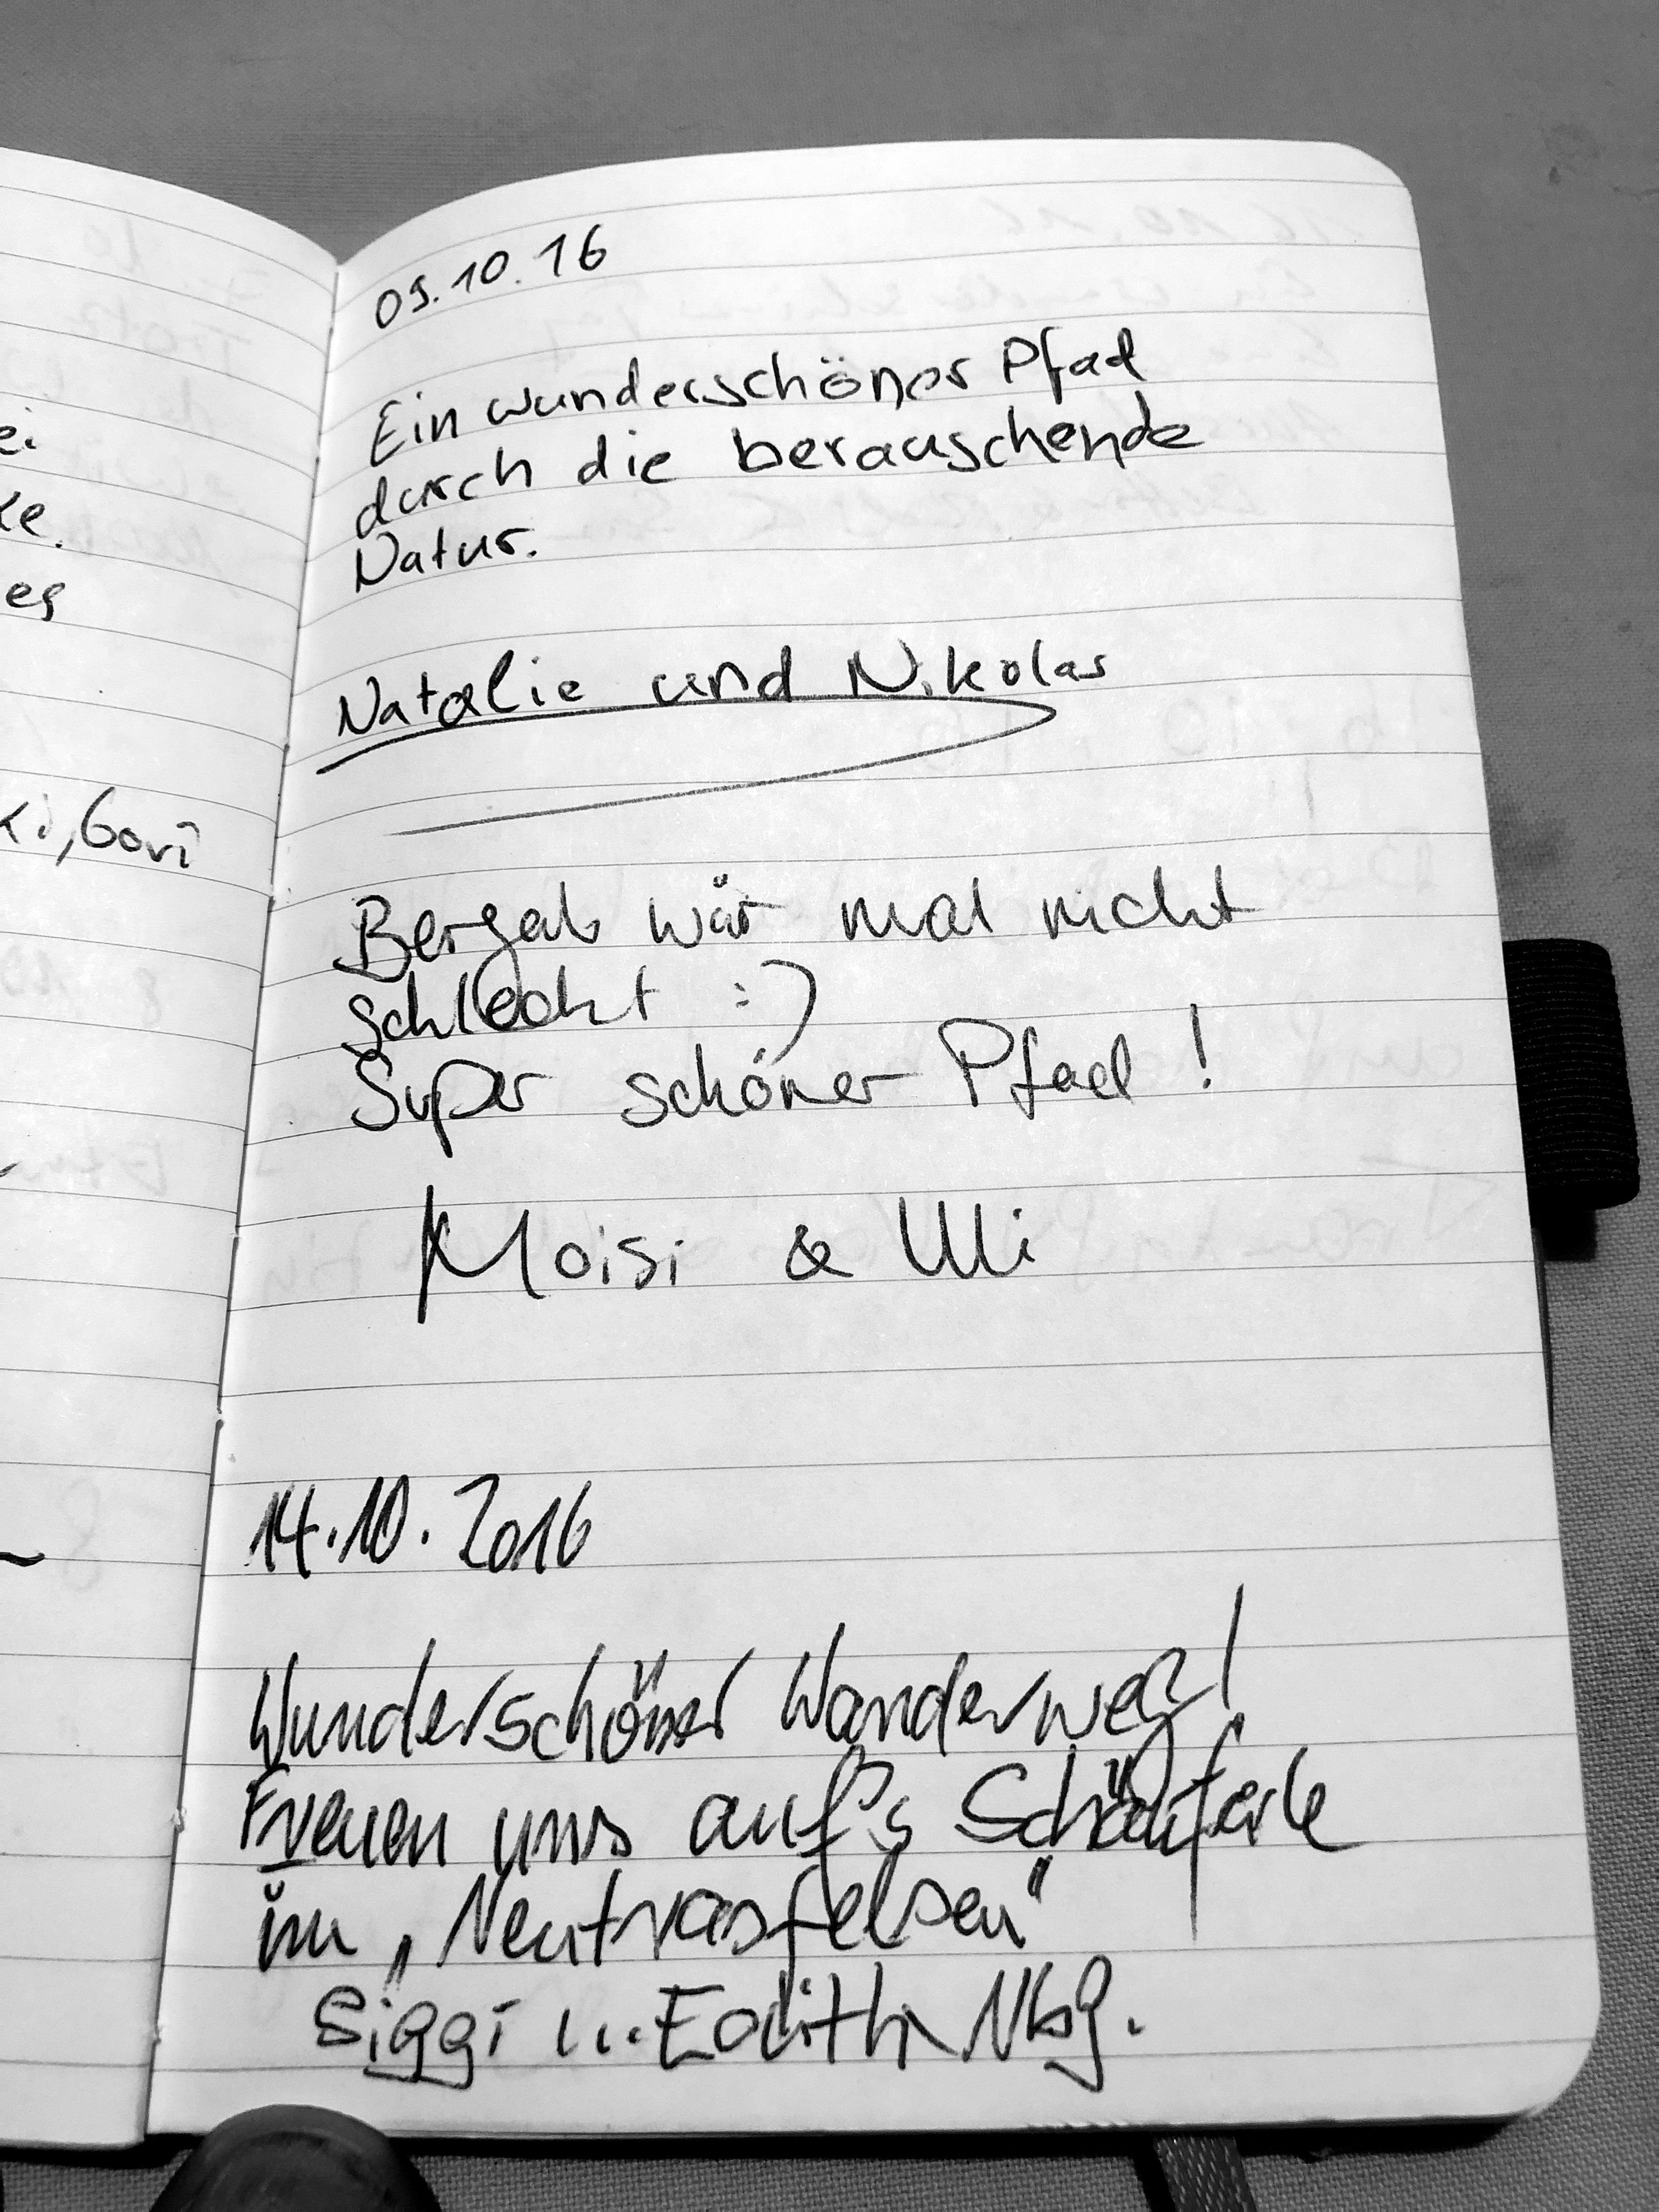 ei.
ke.
es
ki, Gori
09.10.16
Ein wunderschöner Pfad
durch die berauschende
Natur.
Natalie und Nikolas
Bergab wär mal nicht
schlecht :)
Super schöner Pfad!
Moisi & Ulli
14.10.2016
Wunderschöner Wanderweg!
Freuen uns auf's Schäuferle
im „Neutrasfelsen"
Siggi u. Edith Nbg.